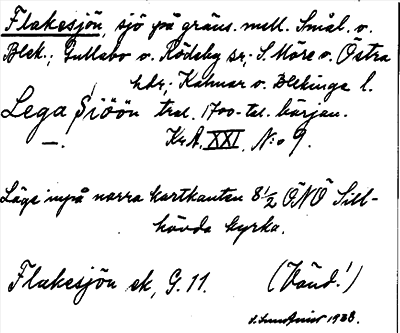 Flakesjön, sjö på gräns. mell. Smål. o.
Blek.; Gullabo o. Rödeby sr; S. Möre o. Östra
hdr; Kalmar o. Blekinge l.
Lega Siöön trol. 1700-tal. början.
—. Kr. A. XXI. N:o 9.
Läge inpå norra kartkanten 8 1/2 ÖNÖ Sill-
hövda kyrka.
Flakesjön ek, G. 11. (Vänd!)
1933.